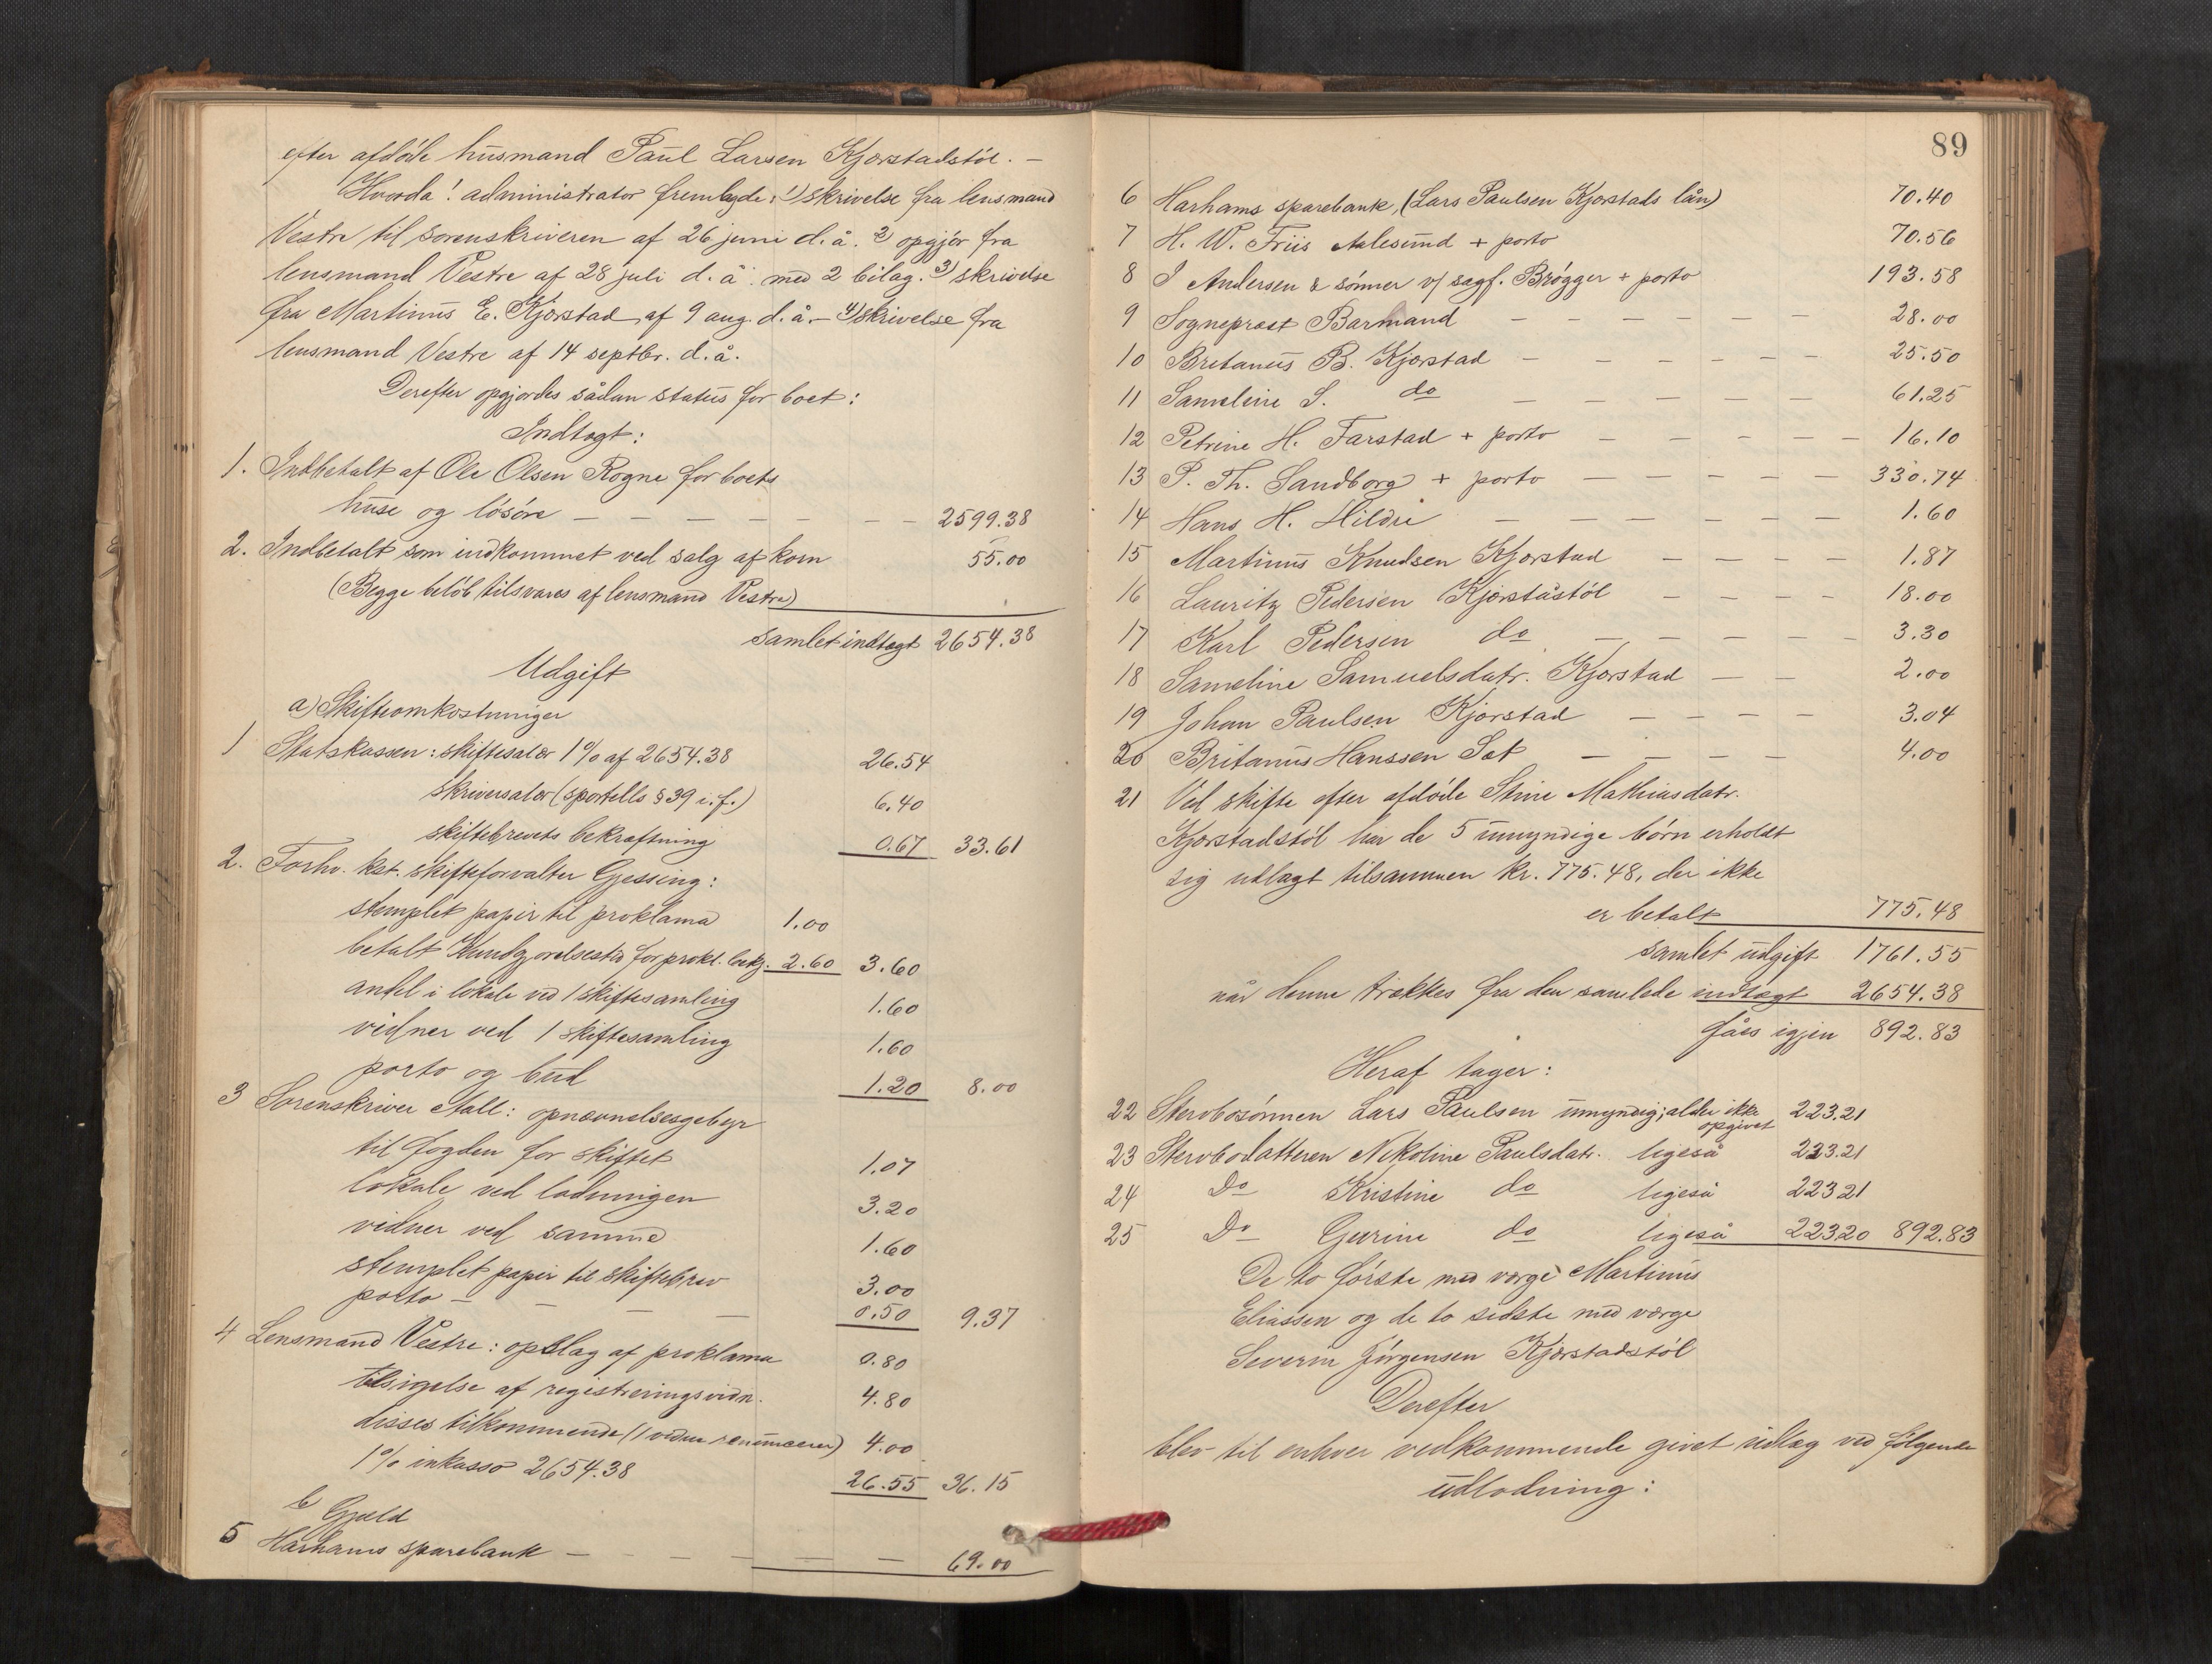 efter afdøde husmand Paul Larsen Kjørstadstøl. –
Hvorda! administrator fremlagde: 1) skrivelse fra lensmand
Vestre til sorenskriveren af 26 juni d. å. 2) opgjør fra
lensmand Vestre af 28 juli d. å. med 2 bilag. 3) skrivelse
fra Martinus E. Kjørstad, af 9 aug. d. å. – 4) skrivelse fra
lensmand Vestre af 14 septbr. d. å.
Derefter opgjordes sådan status for boet:
Indtægt:
1. Indbetalt af Ole Olsen Rogne for boets
huse og løsøre – – – – – – – 2599.38
2. Indbetalt som indkommet ved salg af korn 55.00
(Begge beløb tilsvares af lensmand Vestre)
samlet indtægt 2654.38
Udgift
a) Skifteomkostninger
1 Statskassen: skiftesalær 1% af 2654.38 26.54
skriversalær (sportells § 39 i. f.) 6.40
skiftebrevets bekræftning 0.67 33.61
2. Forhv. kst. skifteforvalter Gjessing:
stemplet papir til proklama 1.00
betalt Kundgjørelsestid for prokl. bekj. 2.60 3.60
andel i lokale ved 1 skiftesamling 1.60
vidner ved 1 skiftesamling 1.60
porto og bud 1.20 8.00
3 Sorenskriver Aall: opnævnelsesgebyr
til fogden for skiftet 1.07
lokale ved lodningen 3.20
vidner ved samme 1.60
stemplet papir til skiftebrev 3.00
porto – – – – 0.50 9.37
4 Lensmand Vestre: opslag af proklama 0.80
tilsigelse af registreringsvidn. 4.80
disses tilkommende (1 vidne renuncerer) 4.00
1% inkasso 2654.38 26.55 36.15
b Gjæld
5 Harhams sparebank – – – – – – 69.00
89
6 Harhams sparebank, (Lars Paulsen Kjørstads lån) 70.40
7 H. W. Friis Aalesund + porto 70.56
8 J Andersen & sønner v/ sagf. Brøgger + porto 193.58
9 Sogneprest Barmand – – – – – – 28.00
10 Britanus B. Kjørstad – – – – – – 25.50
11 Sameline S. do – – – – – 61.25
12 Petrine H. Farstad + porto – – – – – – 16.10
13 P. Th. Sandborg + porto – – – – – – 330.74
14 Hans H. Hildre – – – – – – 1.60
15 Martinus Knudsen Kjørstad – – – – 1.87
16 Lauritz Pedersen Kjørstastøl – – – – 18.00
17 Karl Pedersen do – – – – – – 3.30
18 Sameline Samuelsdatr. Kjørstad – – 2.00
19 Johan Paulsen Kjørstad – – – – 3.04
20 Britanus Hanssen Sæt – – – – 4.00
21 Ved skifte efter afdøde Stine Mathiasdatr.
Kjørstadstøl har de 5 umyndige børn erholdt
sig udlagt tilsammen kr. 775.48, der ikke
er betalt 775.48
samlet udgift 1761.55
når denne trækkes fra den samlede indtægt 2654.38
fåes igjen 892.83
Heraf tager:
22 Stervbosønnen Lars Paulsen umyndig; alder ikke opgivet 223.21
23 Stervbodatteren Nikoline Paulsdatr. ligeså 223.21
24 Do Kristine do ligeså 223 21
25 Do Gurine do ligeså 223 20 892.83
De to første med værge Martinus
Eliassen og de to sidste med værge
Severin Jørgensen Kjørstadstøl
Derefter
blev til enhver vedkommende givet udlæg ved følgende
udlodning: